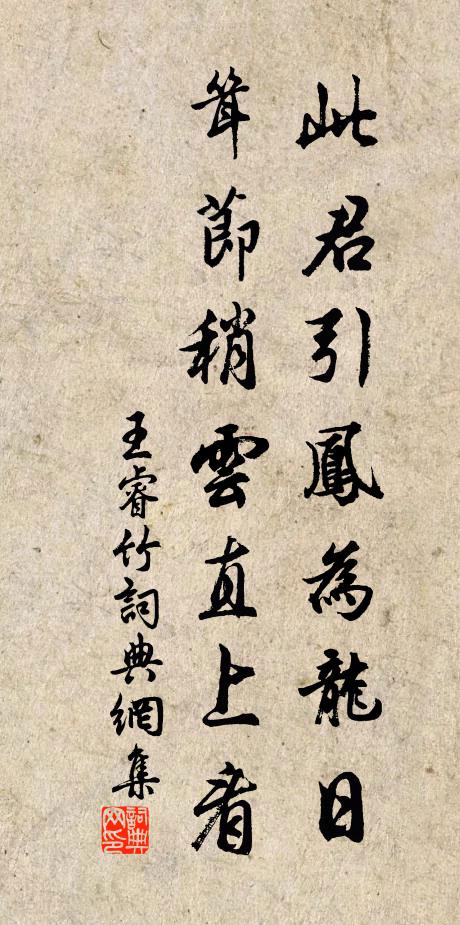 此君引鳳為龍日
耸節稍雲直上看
王睿竹詞典網集
詞典网印